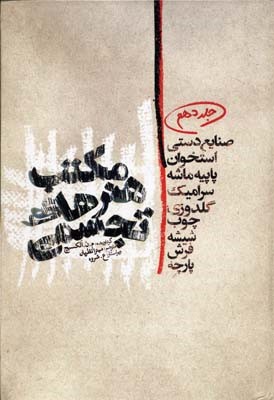 جلد دهم
صنایع دستی
استخوان
پاپیه ماشه
سرامیک
گلدوزی
چوب
شیشه
فرش
پارچه
مکتب
هنرهای
تجسمی